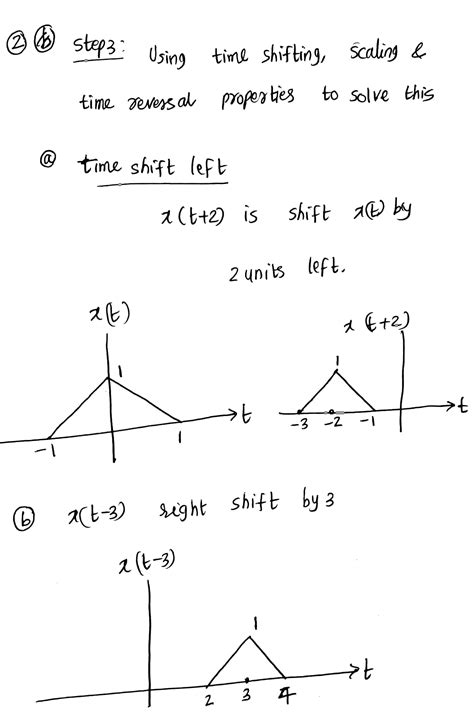 ② ⓑ step3: Using time shifting, scaling &
time reversal properties to solve this
ⓐ time shift left
x(t+2) is shift x(t) by
2 units left.
x(t)
1
t
-1
1
x(t+2)
1
t
-3 -2 -1
ⓑ x(t-3) right shift by 3
x(t-3)
1
t
2 3 4